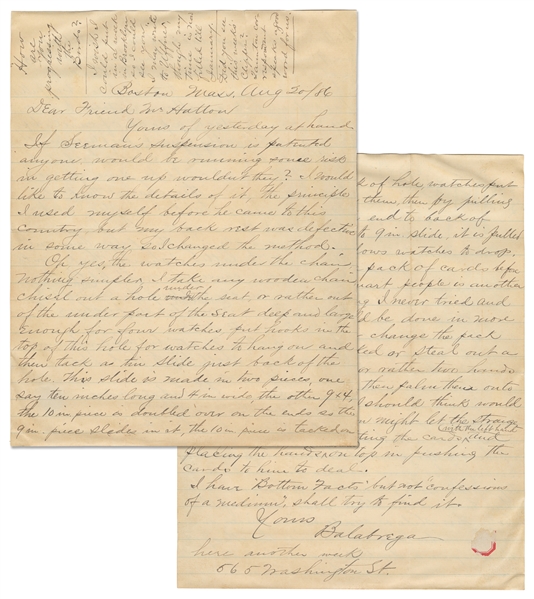 How
are
you
progressing
with
the
Birds?
I wish I
could put
in a week
in Brooklyn
Boston Mass, Aug 20/86
Dear Friend Mr Hatton
Yours of yesterday at hand.
If Seemans Suspension is patented
anyone would be running some risk
in getting one up wouldn't they? I would
like to know the details of it, the principle
I used myself before he came to this
country but my back rest was defective
in some way so I changed the method.
Oh yes, the watches under the chair
nothing simpler, I take any wooden chair
chisel out a hole under the seat, or rather out
of the under part of the seat deep and large
enough for four watches, put hooks in the
top of this hole for watches to hang on and
then tack a tin slide just back of the
hole. This slide is made in two pieces, one
say ten inches long and 4 in wide, the other 9x4.
the 10 in piece is doubled over on the ends so the
9 in. piece slides in it, the 10 in piece is tacked on
k of hole, watches put
them, then by pulling
end to back of
9 in. slide, it is pulled
lows watches to drop.
pack of cards before
mart people is another
I never tried and
be done in more
change the pack
ed or steal out a
or rather two hands
then palm them onto
I should think would
might let the strange
with the left hand
ting the cards and
placing the hands on top in pushing the
cards to him to deal.
I have "Bottom Facts" but not "confessions
of a medium", shall try to find it.
Yours
Balabrega
here another week
565 Washington St.